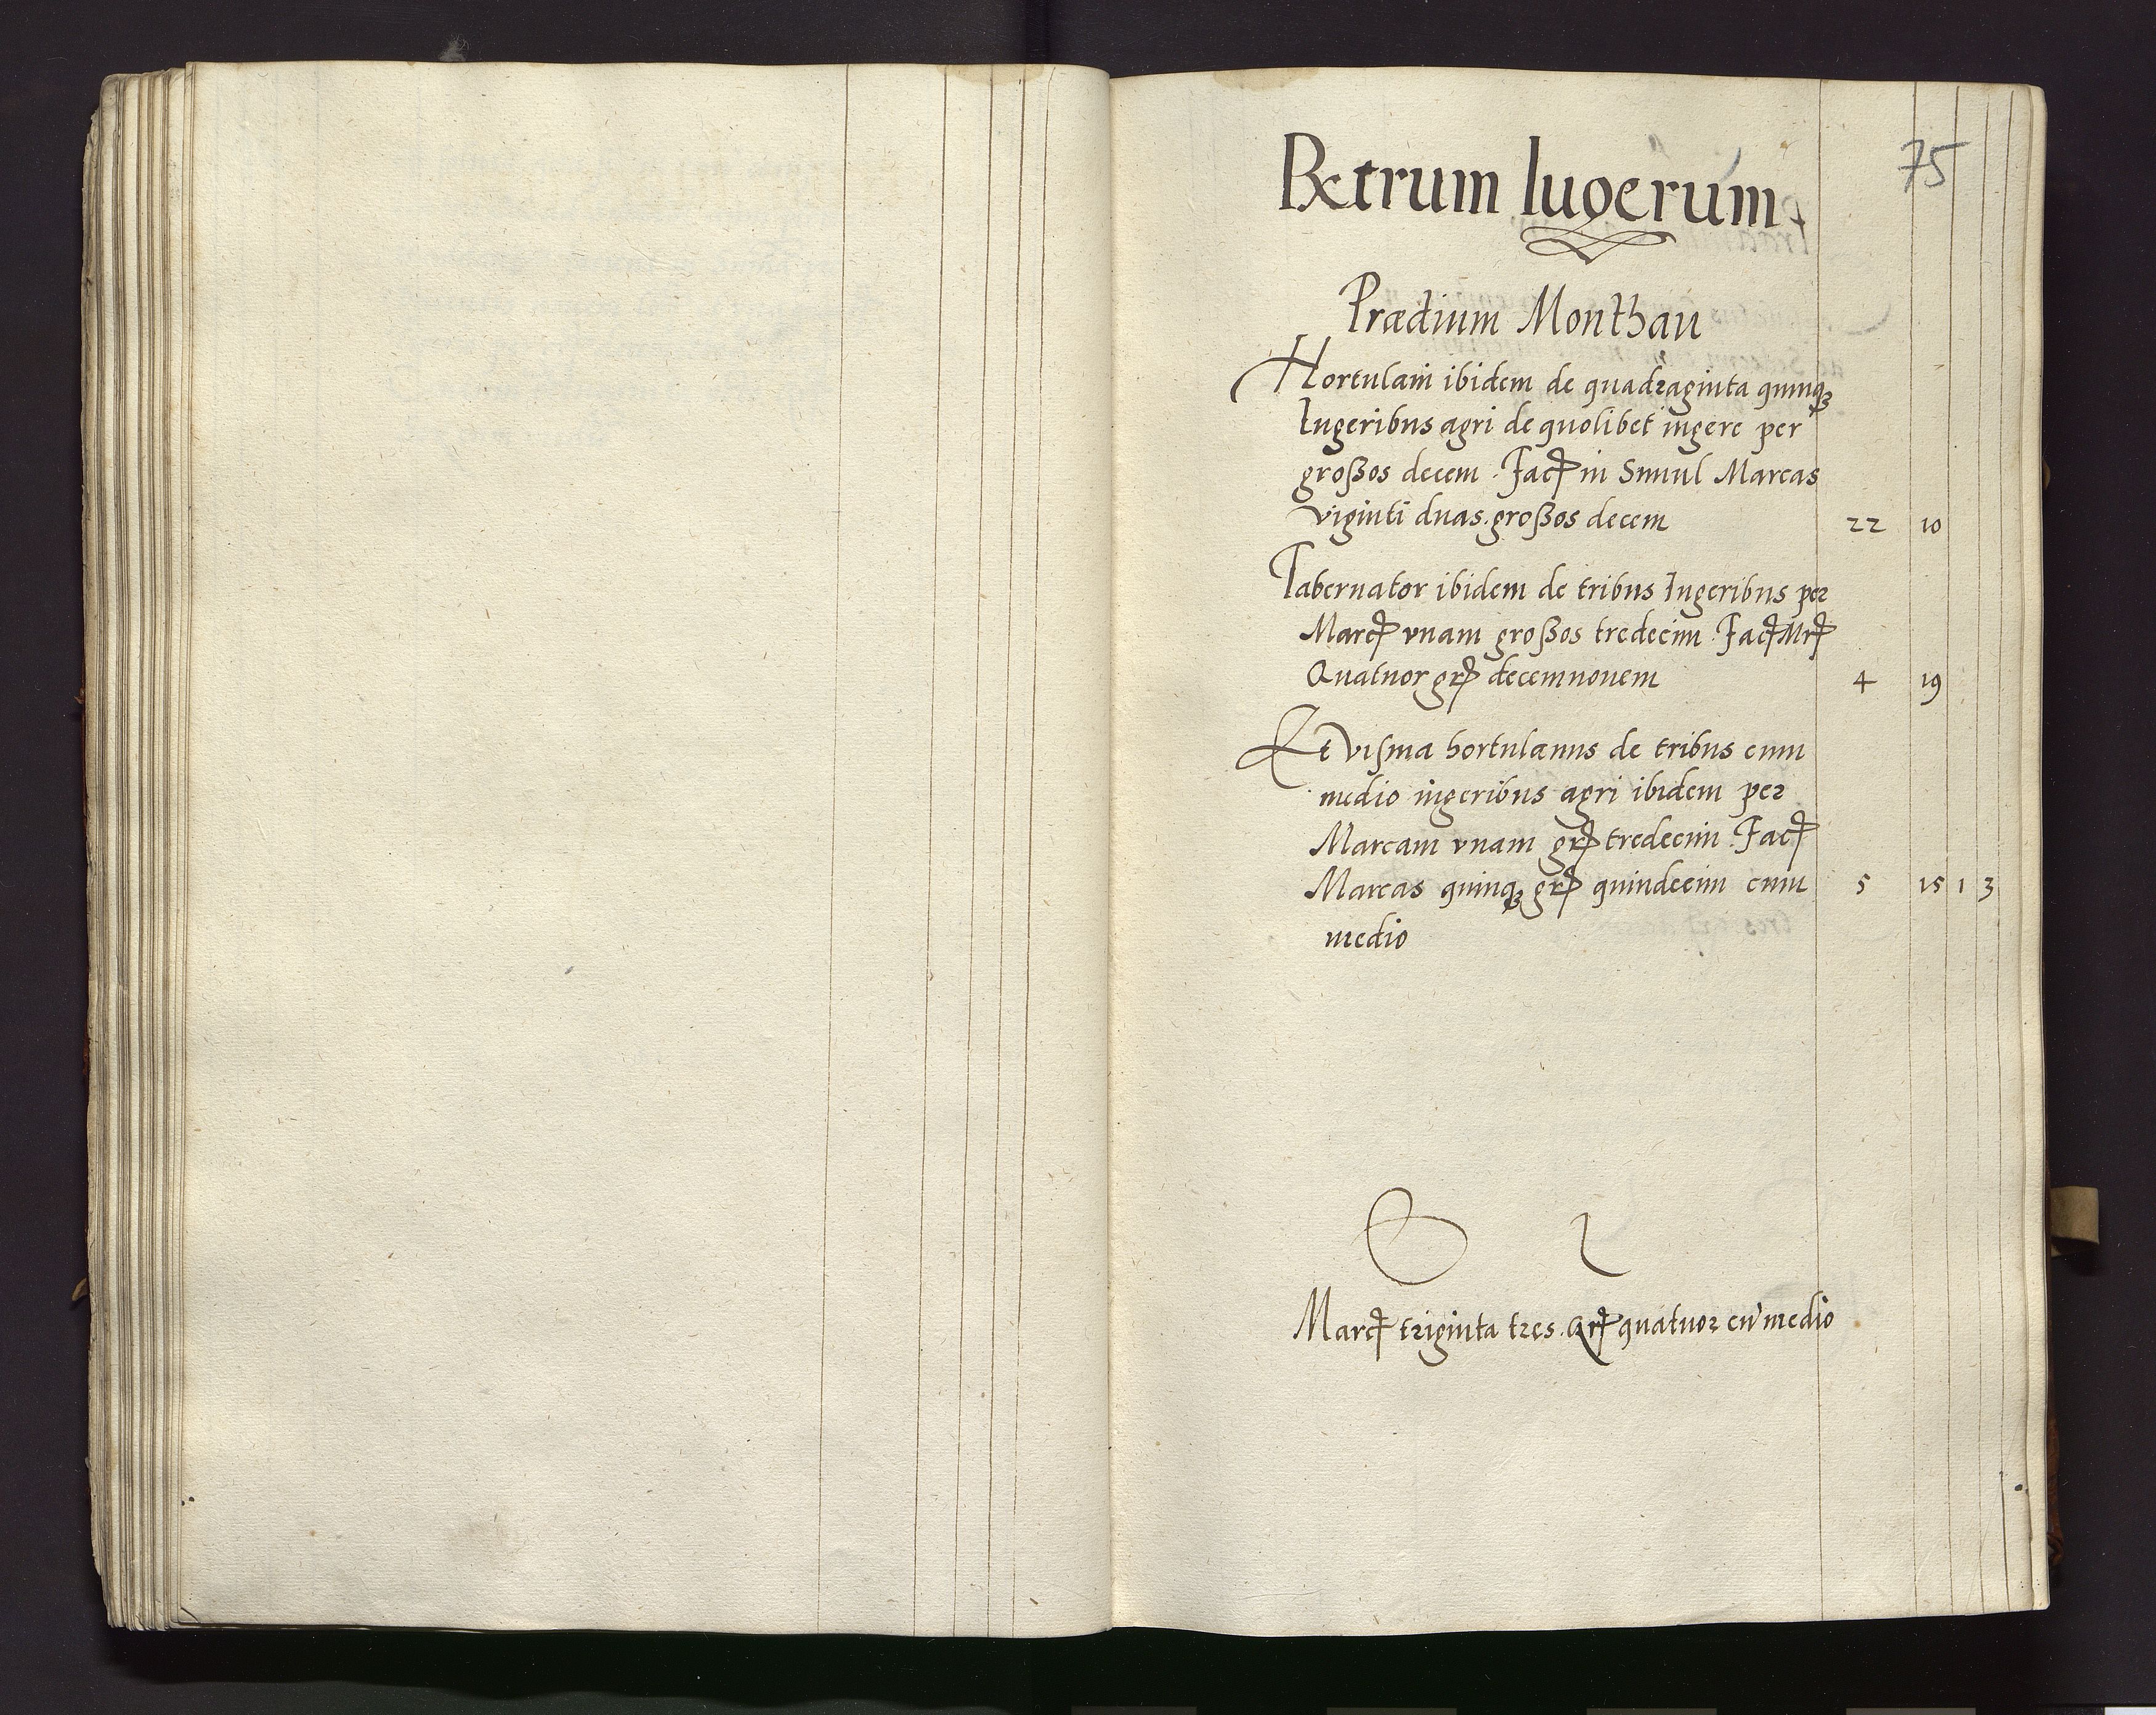 75
Rctrum Iugerum
Prædium Monthau
Hortulani ibidem de quadraginta quinq3
Iugeribus agri de quolibet iugere per
großos decem. Facꝭ in Simul Marcas
viginti duas. großos decem 22 10
Tabernator ibidem de tribus Iugeribus per
Marcꝭ vnam großos tredecim. Facꝭ Mrꝭ
Quatuor grꝭ decemnouem 4 19
Et Visma hortulanus de tribus cum
medio iugeribus agri ibidem per
Marcam vnam grꝭ tredecim. Facꝭ
Marcas quinq3 grꝭ quindecim cum 5 15 1 3
medio
Marcꝭ triginta tres. Grꝭ quatuor cū medio